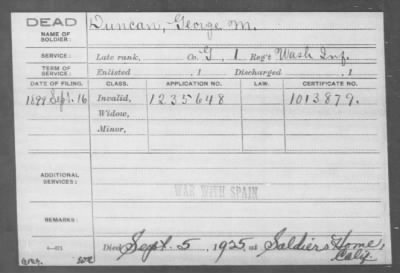 DEAD
NAME OF SOLDIER: Duncan, George M.
SERVICE: Late rank, Co. G, 1 Reg't Wash Inf.
TERM OF SERVICE: Enlisted , 1 Discharged , 1
DATE OF FILING. CLASS. APPLICATION NO. LAW. CERTIFICATE NO.
1899 Sept. 16 Invalid, 1235648 1013879.
Widow,
Minor,
ADDITIONAL SERVICES:
WAR WITH SPAIN
REMARKS:
Died Sept. 5, 1925, at Soldiers Home, Calif.